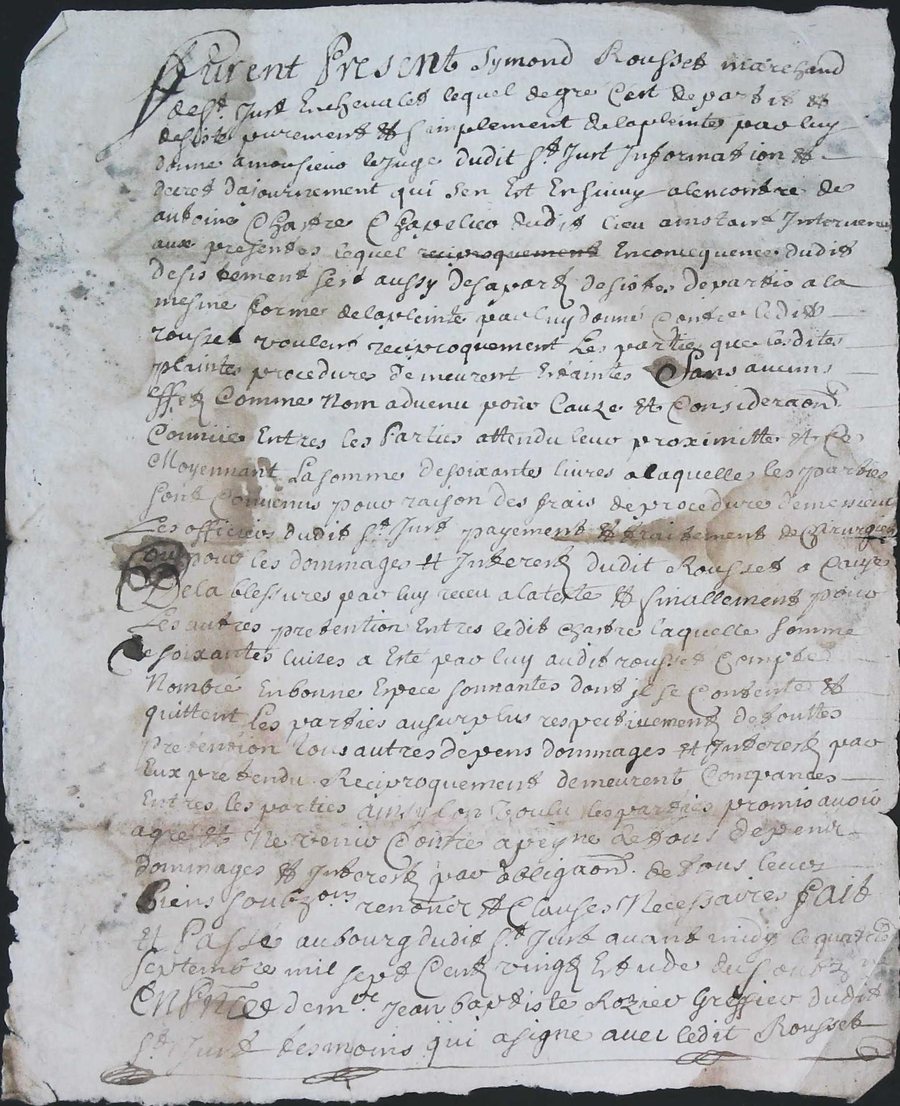 Furent Present Symond Rousset marchand
de St. Just Enchevalet lequel de gre C'est departit et
desiste purement et simplement de la pleinte par luy
donne a monsieur le Juge dudit St. Just Information et
decret dajournement qui sen Est Ensuivy alencontre de
antoine Chastre dudit lieu aux
presentes lequel reciproquement Enconcequence dudit
desistement sest aussy de sa part desiste departis a la
mesme forme de la pleinte par luy donne Contre ledit
rousset voulant reciproquement Les parties que lesdites
plaintes procedures demeurent Sans aucuns
Effet Comme Nom advenu pour Cauze et Consideraon
Connüe Entres les Parties attendu leur proximitte et Ce
Moyennant La somme de soixantes livres a laquelle les parties
sont Convenus pour raison des frais de procedure de messieurs
Les officiers dudit St. Just payement et traittement de Chirurgien
ou pour les dommages et Interest dudit Rousset a Cauze
De la blessures par luy receu a la teste et finallement pour
Les autres pretention Entres ledit Chastre laquelle somme
de soixantes livres a Esté par luy audit rousset Compté
Nombré En bonne Espece sonnantes dont il se Contente et
quittent Les parties au surplus respectivement de touttes
pretention tous autres depens dommages et Interest par
Eux pretendu Reciproquement demeurent Compancés
Entres les parties ainsy lon Voulu les parties promis avoir
agre et Ne venir Contre a peyne de tous depens
dommages et Interest par obligaon de tous leurs
Biens renoncer et Clauses Necessaires Fait
Et Passé au bourg dudit St. Just avant midy le
septembre mil sept Cent vingt
En pnce de me Jean baptiste Rozier Greffier dudit
St. Just temoins qui a signe avec ledit Rousset